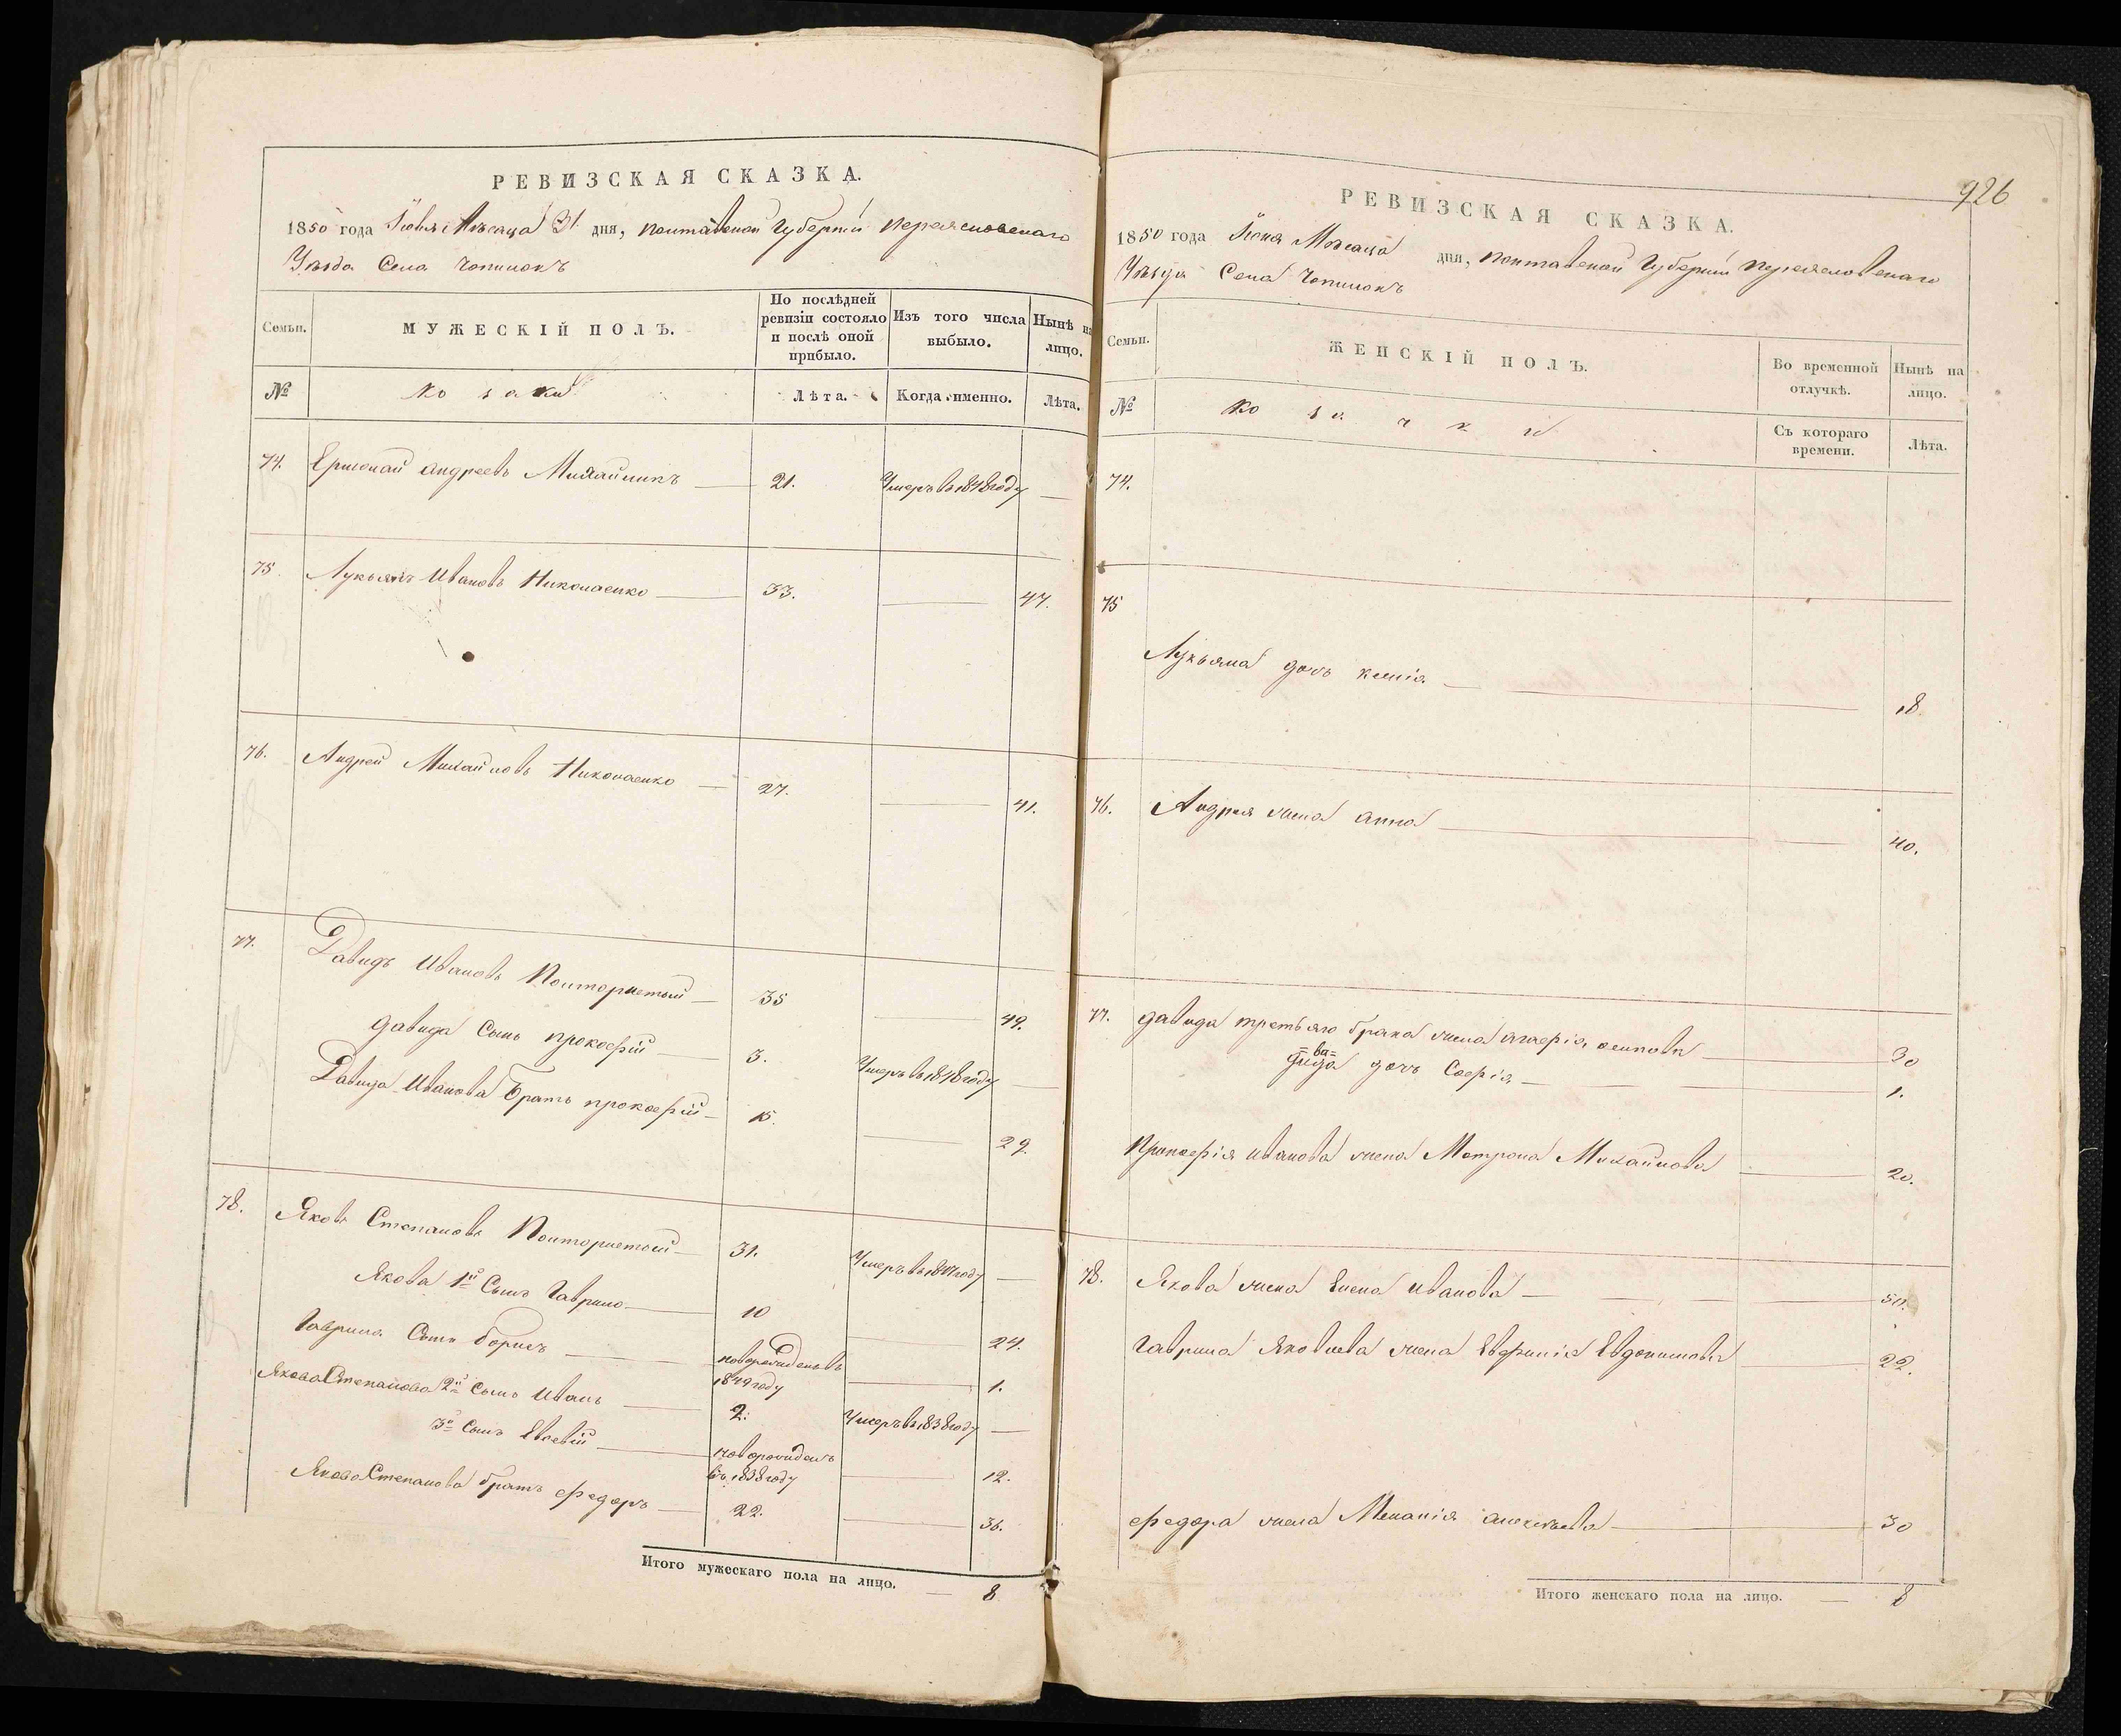 РЕВИЗСКАЯ СКАЗКА.
1850 года Июля Месяца 31 дня, Полтавской Губерніи Переясловскаго
Уезда Села Чопилокъ
Семьи.
МУЖЕСКІЙ ПОЛЪ.
По послѣдней ревизіи состояло и послѣ оной прибыло.
Изъ того числа выбыло.
Нынѣ на лицо.
№
козаки
Лѣта.
Когда именно.
Лѣта.
74. Ермолай андреевъ Михайликъ 21. Умеръ въ 1848 году
75. Лукьянъ Ивановъ Николаенко 33. 47.
76. Андрей Михайловъ Николаенко 27. 41.
77. Давидъ Ивановъ Полторнетый 35 49.
давида Сынъ прокофій 3. Умеръ въ 1848 году
Давида Иванова Братъ прокофій 15. 29.
78. Яковъ Степановъ Полторнетый 31. Умеръ въ 1847 году
Якова 1й Сынъ Гаврило 10 24.
Гаврила Сынъ борисъ новорожденъ въ 1849 году 1.
Якова Степанова 2й Сынъ Иванъ 2. Умеръ въ 1838 году
3й Сынъ Евсевій новорожденъ въ 1838 году 12.
Якова Степанова братъ федоръ 22. 36.
Итого мужескаго пола на лицо. 8
926
РЕВИЗСКАЯ СКАЗКА.
1850 года Месяца дня, Полтавской Губерніи Переясловскаго
Уезда Села Чопилокъ
Семьи.
ЖЕНСКІЙ ПОЛЪ.
Во временной отлучкѣ.
Нынѣ на лицо.
№
козачки
Съ котораго времени.
Лѣта.
74.
75
Лукьяна дочь ксенія 18.
76. Андрея жена анна 40.
77. давида третьяго брака жена осипова 30
=ва=
дида дочь Софія 1.
Прокофія иванова жена Матрона Михайлова 20.
78. Якова жена Елена иванова 50.
Гаврила Яковлева жена Евдокимова 22.
федора жена Меланія алексеева 30
Итого женскаго пола на лицо. 8